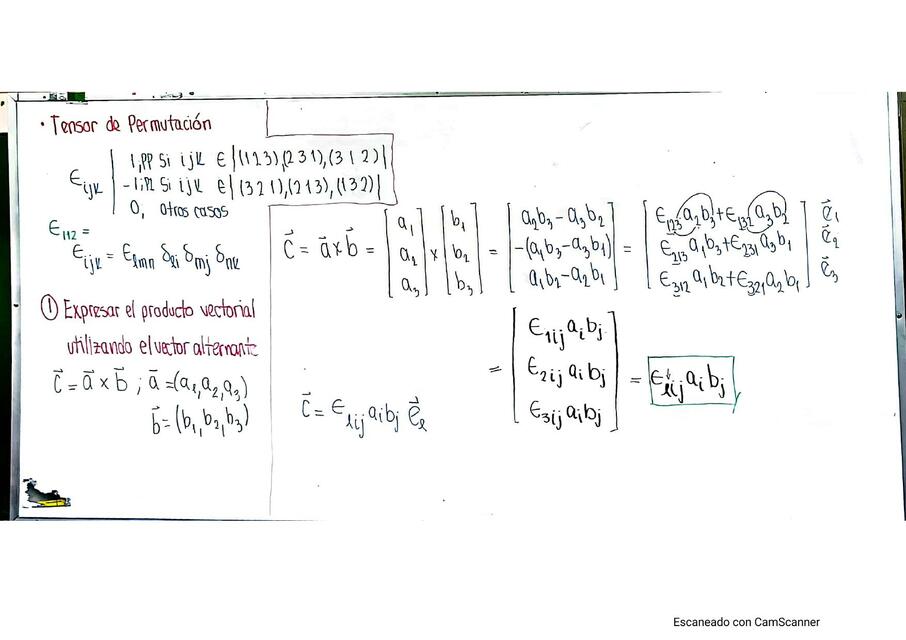 • Tensor de Permutación
ϵijk | 1, PP Si ijk ∈ |(123),(231),(312)|
-1, PI Si ijk ∈ |(321),(213),(132)|
0, Otros casos
ϵ112 =
ϵijk = ϵlmn δli δmj δnk
① Expresar el producto vectorial
utilizando el vector alternante
c⃗ = a⃗ × b⃗ ; a⃗ = (a1, a2, a3)
b⃗ = (b1, b2, b3)
c⃗ = a⃗ × b⃗ = [a1 a2 a3] × [b1 b2 b3] = [a2b3 - a3b2 -(a1b3 - a3b1) a1b2 - a2b1] = [ϵ123 a2b3 + ϵ132 a3b2 ϵ213 a1b3 + ϵ231 a3b1 ϵ312 a1b2 + ϵ321 a2b1] e⃗1 e⃗2 e⃗3
= [ϵ1ij ai bj ϵ2ij ai bj ϵ3ij ai bj] = ϵlij ai bj
c⃗ = ϵlij ai bj e⃗l
Escaneado con CamScanner